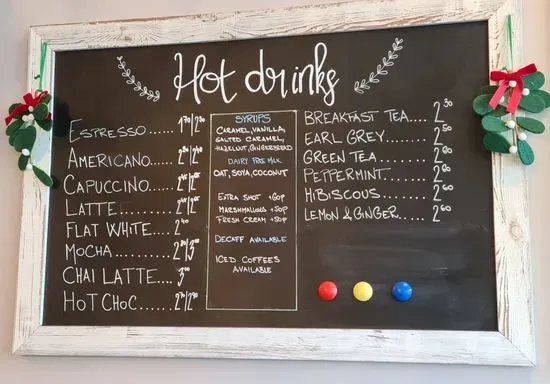 Hot drinks
ESPRESSO...... 1⁷⁰/2³⁰
AMERICANO.....
CAPUCCINO.....
LATTE..........
FLAT WHITE....
MOCHA.........
CHAI LATTE.... 3⁰⁰
HOT CHOC......
SYRUPS
CARAMEL, VANILLA,
SALTED CARAMEL,
HAZELNUT, GINGERBREAD
DAIRY FREE MILK
OAT, SOYA, COCONUT
EXTRA SHOT +60P
MARSHMALLOWS +50P
FRESH CREAM +50P
DECAFF AVAILABLE
ICED COFFEES
AVAILABLE
BREAKFAST TEA.... 2³⁰
EARL GREY....... 2⁵⁰
GREEN TEA....... 2⁶⁰
PEPPERMINT...... 2⁶⁰
HIBISCOUS....... 2⁶⁰
LEMON & GINGER..... 2⁶⁰